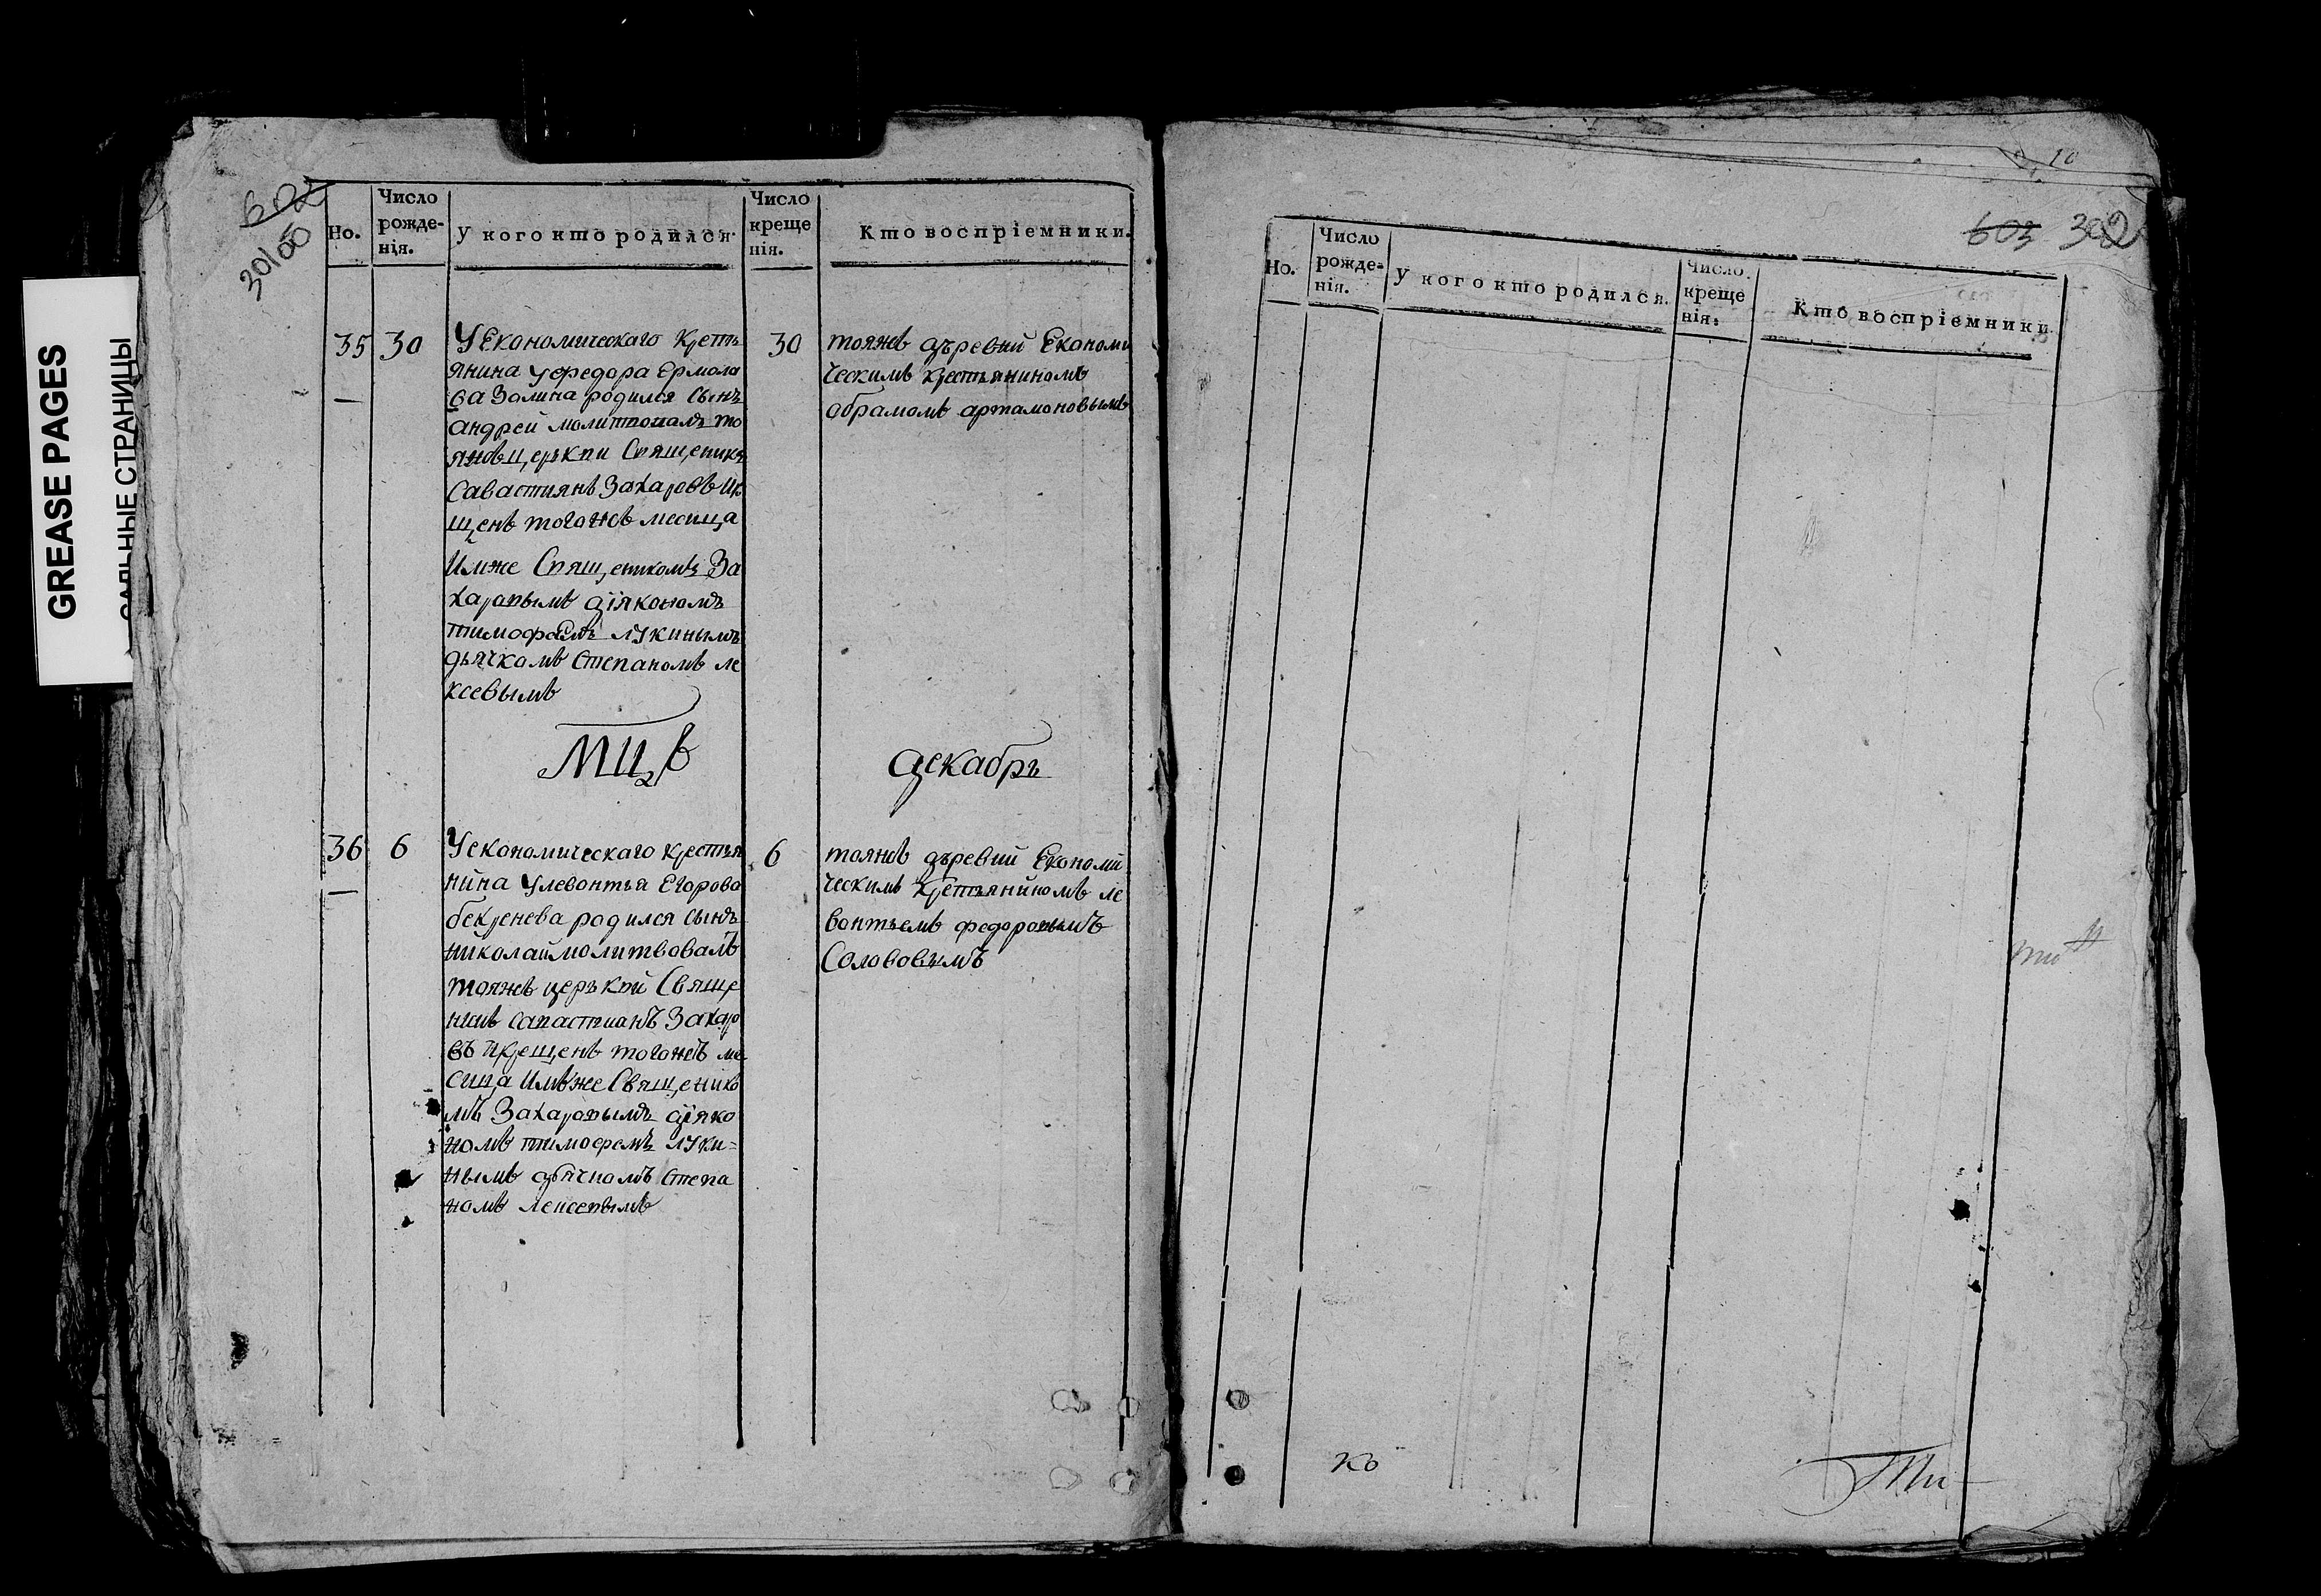 GREASE PAGES
САЛЬНЫЕ СТРАНИЦЫ
602
301об
Но.
Число рожде-нія.
У кого кто родился.
Число креще нія.
Кто воспріемники.
35 30
УЕкономическаго Крестъ
янина уфедора Ермола
ва Золина родился Сынъ
андреи молитвовалъ то
яжъ церкви Священикъ
Савастиянъ Захаровъ ик
щенъ тогожъ месица
Имже Священикомъ За
харовымъ діякономъ
тимофемъ лукинымъ
дьячкомъ Степаномъ ле
ксевымъ
30
тояжъ дъревни Економи
ческимъ крестьяниномъ
абрамомъ артамоновымъ
Мцъ
декабрь
36 6
Уекономическаго крестья
нина Улевонтья Егорова
бекренева родился сынъ
николай молитвовалъ
тояжъ церъкви Свяще
никъ савастиянъ Захаро
въ икрещенъ тогожъ ме
сица Имъже Священико
мъ Захаровымъ діяко
номъ тимофемъ луки=
нымъ дьячкомъ Степа
номъ лексевымъ
6
тояжъ дъревни Економи
ческимъ Кретьяниномъ ле
вонтьемъ федоровымъ
Соловьвымъ
10
603 302
Но.
Число рожде-нія.
У кого кто родился.
Число креще нія.
Кто воспріемники.
ко